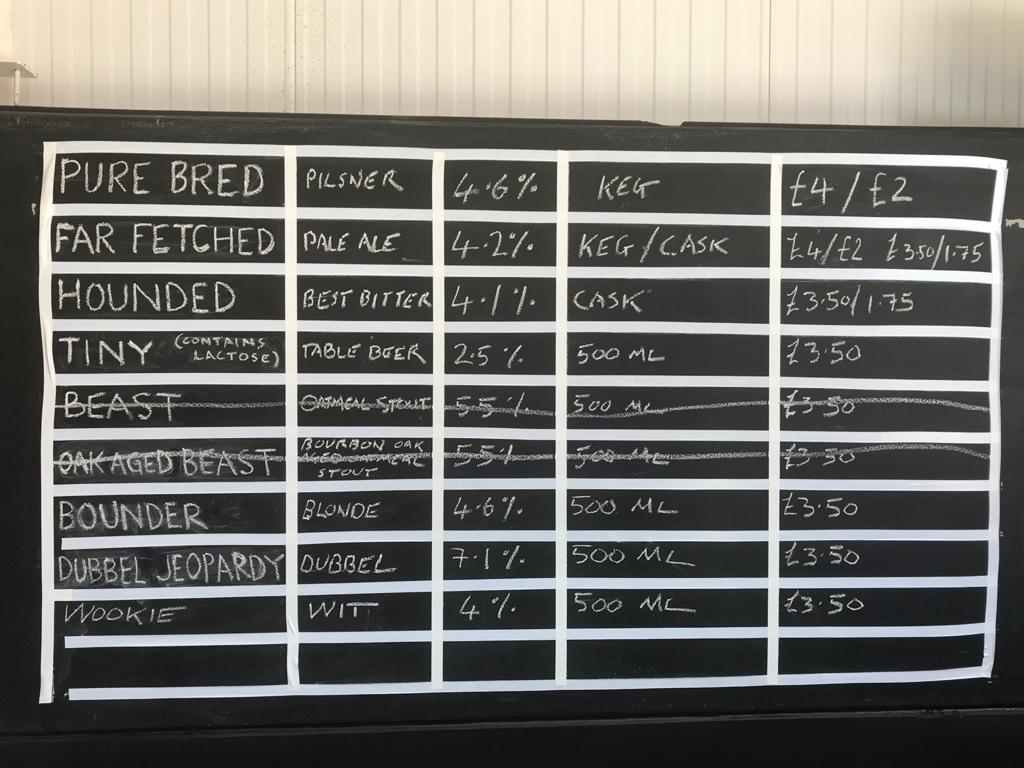 PURE BRED PILSNER 4.6% KEG £4/£2
FAR FETCHED PALE ALE 4.2% KEG/CASK £4/£2 £3.50/1.75
HOUNDED BEST BITTER 4.1% CASK £3.50/1.75
TINY (CONTAINS LACTOSE) TABLE BEER 2.5% 500 ML £3.50
BEAST OATMEAL STOUT 5.5% 500 ML £3.50
OAK AGED BEAST BOURBON OAK AGED OATMEAL STOUT 5.5% 500 ML £3.50
BOUNDER BLONDE 4.6% 500 ML £3.50
DUBBEL JEOPARDY DUBBEL 7.1% 500 ML £3.50
WOOKIE WITT 4% 500 ML £3.50